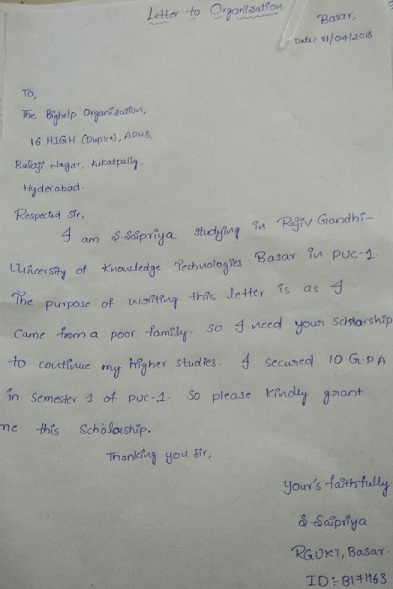 Letter to Organisation
Basar,
Date: 11/04/2018
To,
The Bighelp Organisation,
16 HIGH (Duplex), APHB,
Balaji Nagar, kukatpally,
Hyderabad.
Respected Sir,
I am S.Saipriya studying in Rajiv Gandhi-
University of Knowledge Technologies Basar in PUC-1.
The purpose of writing this letter is as I
came from a poor family. so I need your Scholarship
to continue my higher studies. I secured 10 G.P.A
in semester 1 of puc-1. So please kindly grant
me this Scholarship.
Thanking you Sir,
Your's faithfully
S.Saipriya
RGUKT, Basar.
ID:-B171163